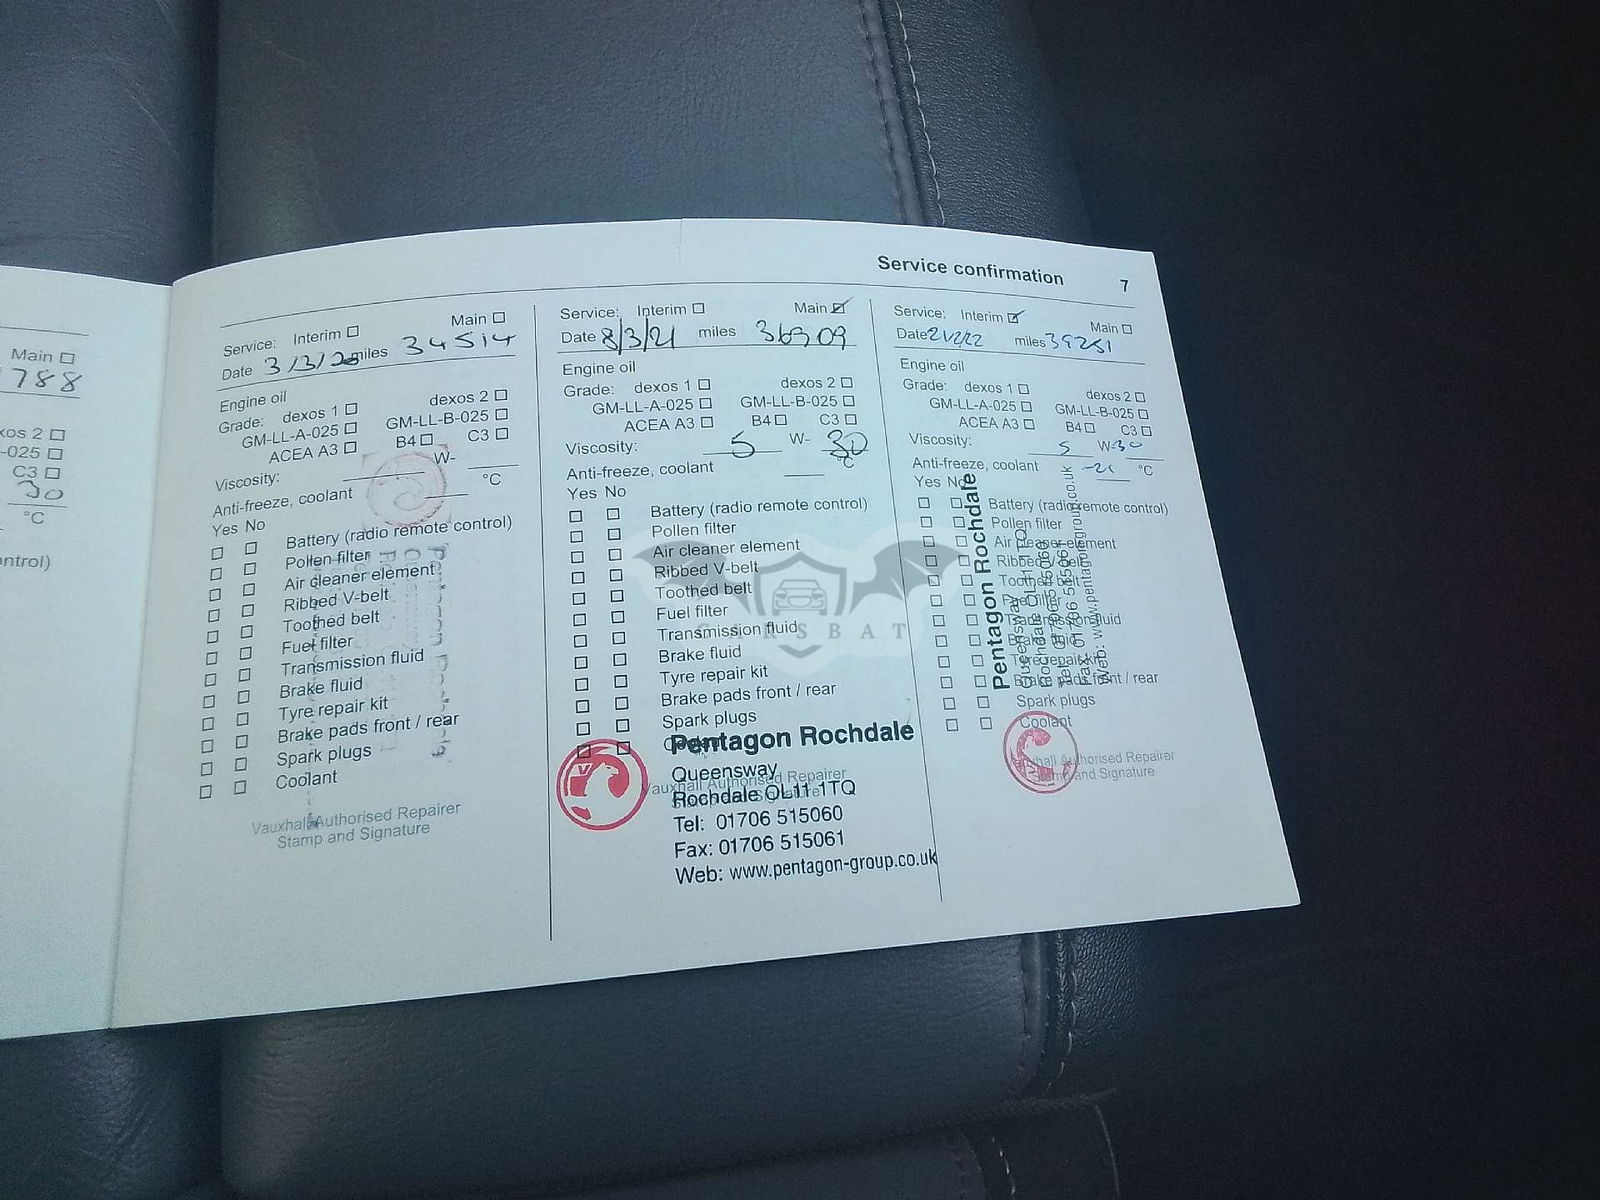 Service confirmation 7
Main
788
xos 2
-025
C3
30
°C
ntrol)
Service: Interim Main
Date 3/3/20 miles 34514
Engine oil
Grade: dexos 1 dexos 2
GM-LL-A-025 GM-LL-B-025
ACEA A3 B4 C3
Viscosity: W-
Anti-freeze, coolant °C
Yes No
Battery (radio remote control)
Pollen filter
Air cleaner element
Ribbed V-belt
Toothed belt
Fuel filter
Transmission fluid
Brake fluid
Tyre repair kit
Brake pads front / rear
Spark plugs
Coolant
Vauxhall Authorised Repairer
Stamp and Signature
Service: Interim Main
Date 8/3/21 miles 36909
Engine oil
Grade: dexos 1 dexos 2
GM-LL-A-025 GM-LL-B-025
ACEA A3 B4 C3
Viscosity: 5 W- 30
Anti-freeze, coolant °C
Yes No
Battery (radio remote control)
Pollen filter
Air cleaner element
Ribbed V-belt
Toothed belt
Fuel filter
Transmission fluid
Brake fluid
Tyre repair kit
Brake pads front / rear
Spark plugs
Coolant
Vauxhall Authorised Repairer
Stamp and Signature
Pentagon Rochdale
Queensway
Rochdale OL11 1TQ
Tel: 01706 515060
Fax: 01706 515061
Web: www.pentagon-group.co.uk
Service: Interim Main
Date 21/2/22 miles 39251
Engine oil
Grade: dexos 1 dexos 2
GM-LL-A-025 GM-LL-B-025
ACEA A3 B4 C3
Viscosity: 5 W-30
Anti-freeze, coolant -21 °C
Yes No
Battery (radio remote control)
Pollen filter
Air cleaner element
Ribbed V-belt
Toothed belt
Fuel filter
Transmission fluid
Brake fluid
Tyre repair kit
Brake pads front / rear
Spark plugs
Coolant
Vauxhall Authorised Repairer
Stamp and Signature
Pentagon Rochdale
Queensway
Rochdale OL11 1TQ
Tel: 01706 515060
Fax: 01706 515061
Web: www.pentagon-group.co.uk
CARSBAT